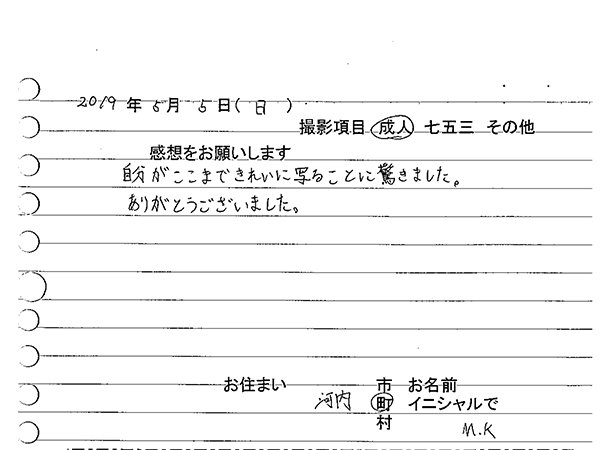 2019年5月5日(日)
撮影項目 成人 七五三 その他
感想をお願いします
自分がここまできれいに写ることに驚きました。
ありがとうございました。
お住まい 市 お名前
河内 町 イニシャルで
村 M.K